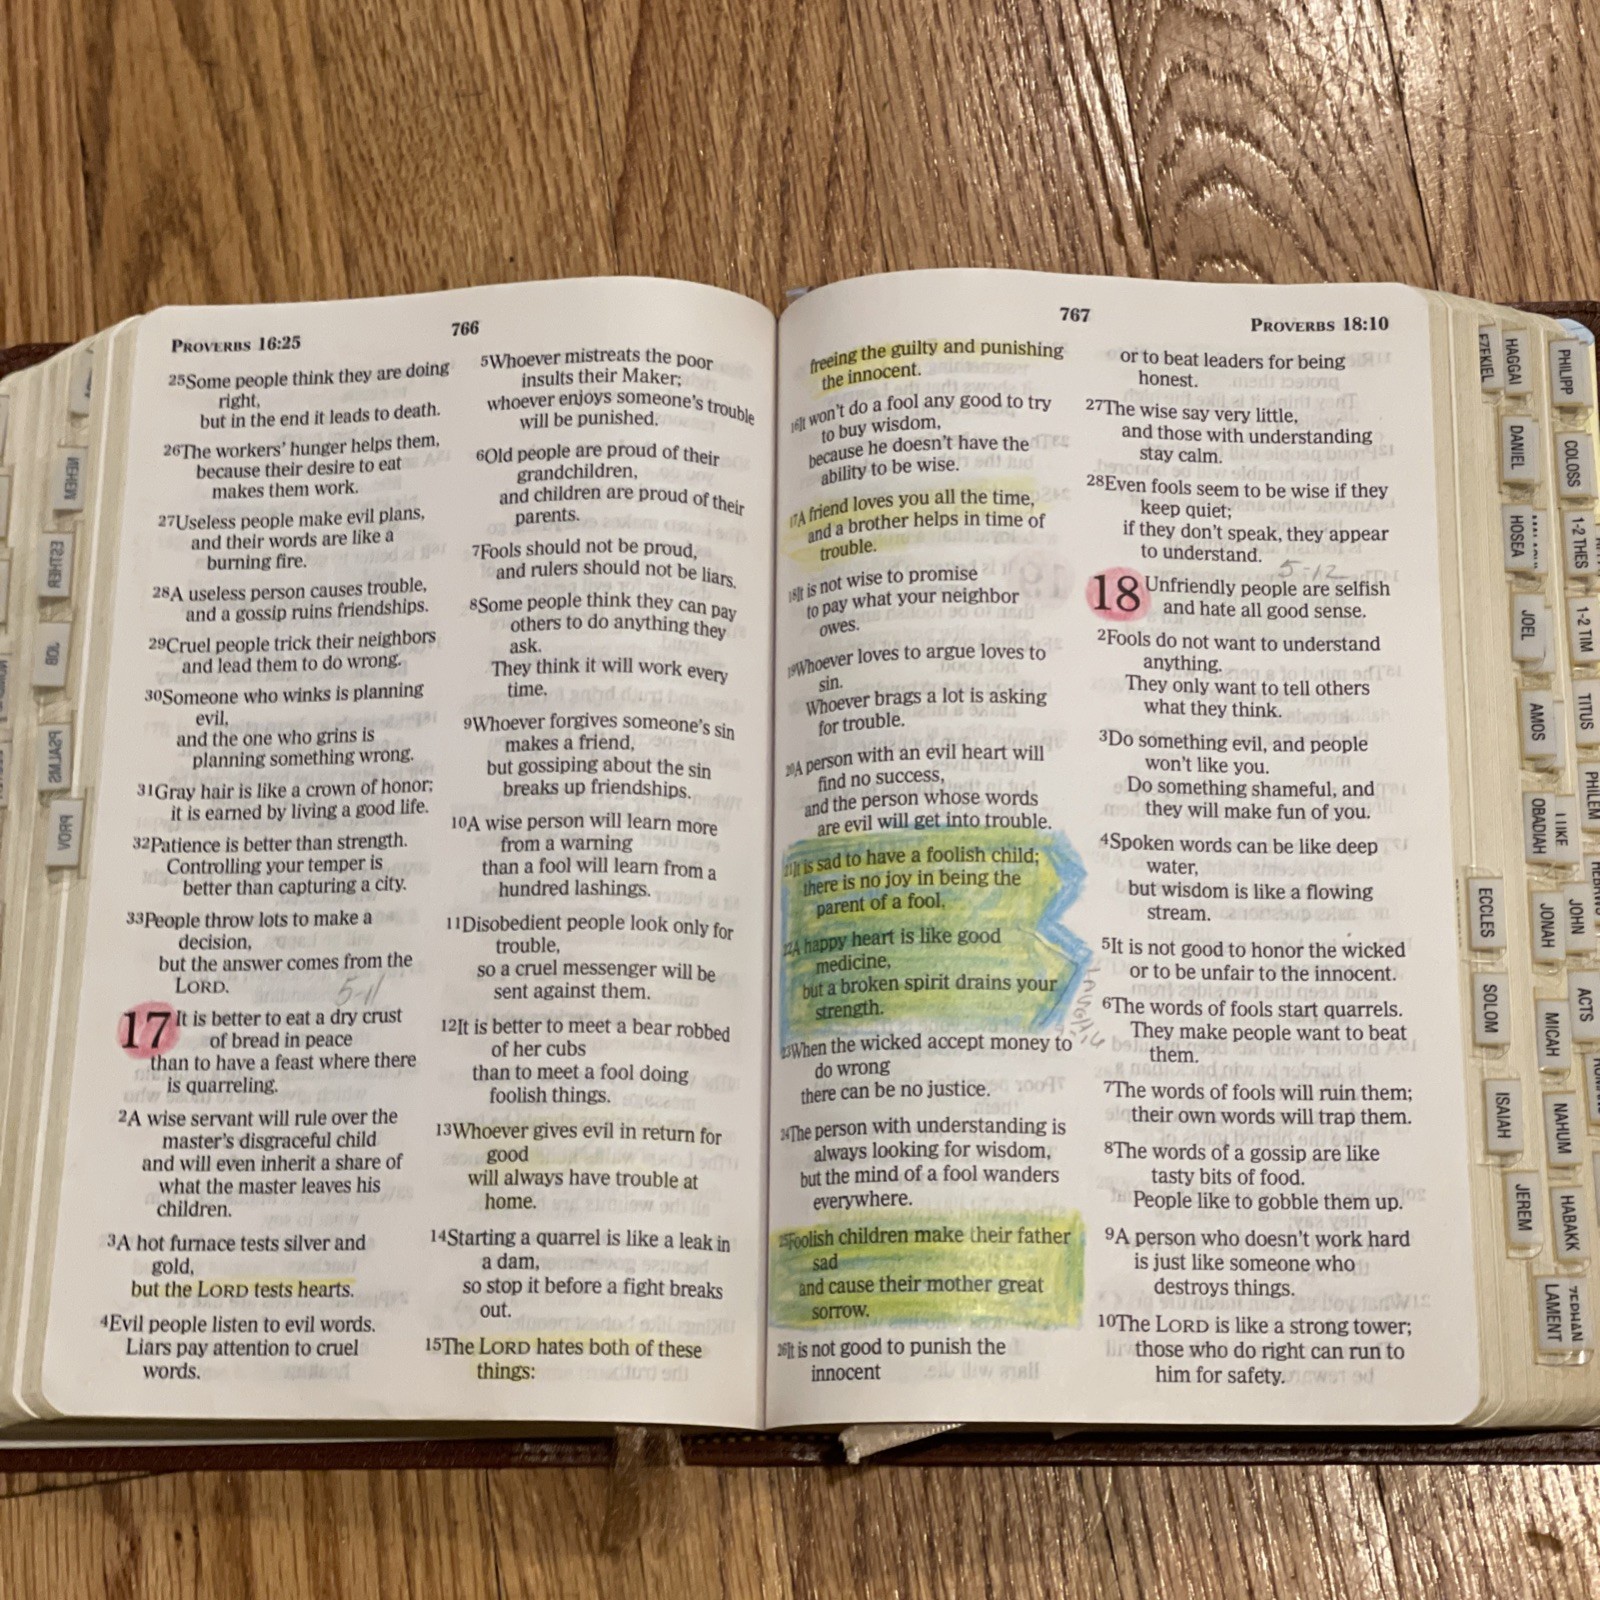 PROVERBS 16:25
766
25Some people think they are doing
right,
but in the end it leads to death.
26The workers' hunger helps them,
because their desire to eat
makes them work.
27Useless people make evil plans,
and their words are like a
burning fire.
28A useless person causes trouble,
and a gossip ruins friendships.
29Cruel people trick their neighbors
and lead them to do wrong.
30Someone who winks is planning
evil,
and the one who grins is
planning something wrong.
31Gray hair is like a crown of honor;
it is earned by living a good life.
32Patience is better than strength.
Controlling your temper is
better than capturing a city.
33People throw lots to make a
decision,
but the answer comes from the
LORD.
5-11
17 It is better to eat a dry crust
of bread in peace
than to have a feast where there
is quarreling.
2A wise servant will rule over the
master's disgraceful child
and will even inherit a share of
what the master leaves his
children.
3A hot furnace tests silver and
gold,
but the LORD tests hearts.
4Evil people listen to evil words.
Liars pay attention to cruel
words.
5Whoever mistreats the poor
insults their Maker;
whoever enjoys someone's trouble
will be punished.
6Old people are proud of their
grandchildren,
and children are proud of their
parents.
7Fools should not be proud,
and rulers should not be liars.
8Some people think they can pay
others to do anything they
ask.
They think it will work every
time.
9Whoever forgives someone's sin
makes a friend,
but gossiping about the sin
breaks up friendships.
10A wise person will learn more
from a warning
than a fool will learn from a
hundred lashings.
11Disobedient people look only for
trouble,
so a cruel messenger will be
sent against them.
12It is better to meet a bear robbed
of her cubs
than to meet a fool doing
foolish things.
13Whoever gives evil in return for
good
will always have trouble at
home.
14Starting a quarrel is like a leak in
a dam,
so stop it before a fight breaks
out.
15The LORD hates both of these
things:
767
PROVERBS 18:10
freeing the guilty and punishing
the innocent.
16It won't do a fool any good to try
to buy wisdom,
because he doesn't have the
ability to be wise.
17A friend loves you all the time,
and a brother helps in time of
trouble.
18It is not wise to promise
to pay what your neighbor
owes.
19Whoever loves to argue loves to
sin.
Whoever brags a lot is asking
for trouble.
20A person with an evil heart will
find no success,
and the person whose words
are evil will get into trouble.
21It is sad to have a foolish child;
there is no joy in being the
parent of a fool.
22A happy heart is like good
medicine,
but a broken spirit drains your
strength.
23When the wicked accept money to
do wrong
there can be no justice.
24The person with understanding is
always looking for wisdom,
but the mind of a fool wanders
everywhere.
25Foolish children make their father
sad
and cause their mother great
sorrow.
26It is not good to punish the
innocent
or to beat leaders for being
honest.
27The wise say very little,
and those with understanding
stay calm.
28Even fools seem to be wise if they
keep quiet;
if they don't speak, they appear
to understand.
5-12
18 Unfriendly people are selfish
and hate all good sense.
2Fools do not want to understand
anything.
They only want to tell others
what they think.
3Do something evil, and people
won't like you.
Do something shameful, and
they will make fun of you.
4Spoken words can be like deep
water,
but wisdom is like a flowing
stream.
5It is not good to honor the wicked
or to be unfair to the innocent.
6The words of fools start quarrels.
They make people want to beat
them.
7The words of fools will ruin them;
their own words will trap them.
8The words of a gossip are like
tasty bits of food.
People like to gobble them up.
9A person who doesn't work hard
is just like someone who
destroys things.
10The LORD is like a strong tower;
those who do right can run to
him for safety.
NEHEM
ESTHER
JOB
PSALMS
PROV
ECCLES
SOLOM
ISAIAH
JEREM
LAMENT
EZEKIEL
DANIEL
HOSEA
JOEL
AMOS
OBADIAH
JONAH
MICAH
NAHUM
HABAKK
ZEPHAN
HAGGAI
LUKE
JOHN
ACTS
PHILIPP
COLOSS
1-2 THES
1-2 TIM
TITUS
PHILEM